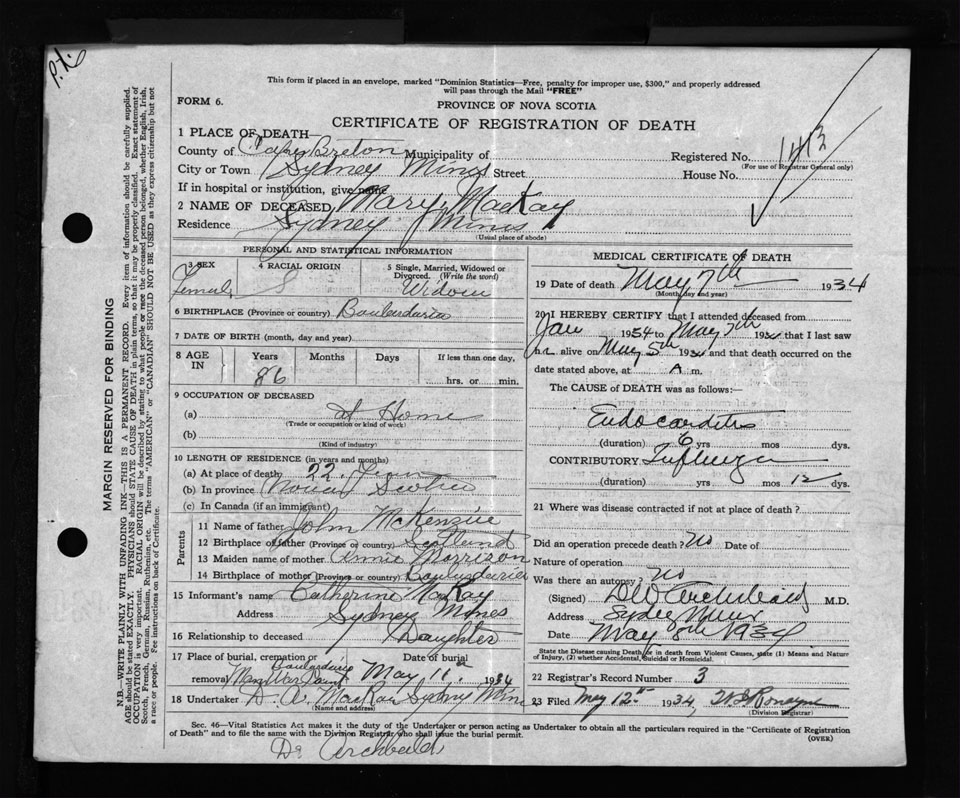 This form if placed in an envelope, marked "Dominion Statistics—Free, penalty for improper use, $300," and properly addressed
will pass through the Mail "FREE"
FORM 6.
PROVINCE OF NOVA SCOTIA
CERTIFICATE OF REGISTRATION OF DEATH
1 PLACE OF DEATH—
County of Cape Breton Municipality of
Registered No. 1413
(For use of Registrar General only)
City or Town Sydney Mines Street House No.
If in hospital or institution, give name
2 NAME OF DECEASED Mary MacKay
Residence Sydney Mines
(Usual place of abode)
PERSONAL AND STATISTICAL INFORMATION
3 SEX Female
4 RACIAL ORIGIN
5 Single, Married, Widowed or Divorced. (Write the word) Widow
6 BIRTHPLACE (Province or country) Boulardarie
7 DATE OF BIRTH (month, day and year)
8 AGE IN Years 86 Months Days If less than one day, hrs. or min.
9 OCCUPATION OF DECEASED
(a) at Home
(Trade or occupation or kind of work)
(b)
(Kind of industry)
10 LENGTH OF RESIDENCE (in years and months)
(a) At place of death 22 Years
(b) In province Nova Scotia
(c) In Canada (if an immigrant)
Parents
11 Name of father John McKenzie
12 Birthplace of father (Province or country) Scotland
13 Maiden name of mother Annie Morrison
14 Birthplace of mother (Province or country) Boulardarie
15 Informant's name Catherine MacKay
Address Sydney Mines
16 Relationship to deceased Daughter
17 Place of burial, cremation or removal Boulardarie Man War Point
Date of burial May 11th 1934
18 Undertaker D. A. MacKay Sydney Mines
(Name and address)
MEDICAL CERTIFICATE OF DEATH
19 Date of death May 7th 1934
(Month, day and year)
20 I HEREBY CERTIFY that I attended deceased from
Jan 1934 to May 7th 193 that I last saw
h alive on May 5th 193 and that death occurred on the
date stated above, at A m.
The CAUSE of DEATH was as follows:—
Endocarditis
(duration) 6 yrs mos dys.
CONTRIBUTORY Influenza
(duration) yrs mos 12 dys.
21 Where was disease contracted if not at place of death?
Did an operation precede death? No Date of
Nature of operation
Was there an autopsy? No
(Signed) Archibald M.D.
Address Sydney Mines
Date May 8th 1934
State the Disease causing Death, or in death from Violent Causes, state (1) Means and Nature
of Injury, (2) whether Accidental, Suicidal or Homicidal.
22 Registrar's Record Number 3
23 Filed May 12th 1934,
(Division Registrar)
Sec. 46—Vital Statistics Act makes it the duty of the Undertaker or person acting as Undertaker to obtain all the particulars required in the "Certificate of Registration
of Death" and to file the same with the Division Registrar who shall issue the burial permit.
(OVER)
Dr Archibald
MARGIN RESERVED FOR BINDING
N.B.—WRITE PLAINLY WITH UNFADING INK—THIS IS A PERMANENT RECORD. Every item of information should be carefully supplied.
AGE should be stated EXACTLY. PHYSICIANS should STATE CAUSE OF DEATH in plain terms, so that it may be properly classified. Exact statement of
OCCUPATION is very important. RACIAL ORIGIN will be described by stating to what people or race the deceased person belonged, whether English, Irish,
Scotch, French, German, Russian, Ruthenian, etc. The terms "AMERICAN" or "CANADIAN" SHOULD NOT BE USED as they express citizenship but not
a race or people. Fee instructions on back of Certificate.